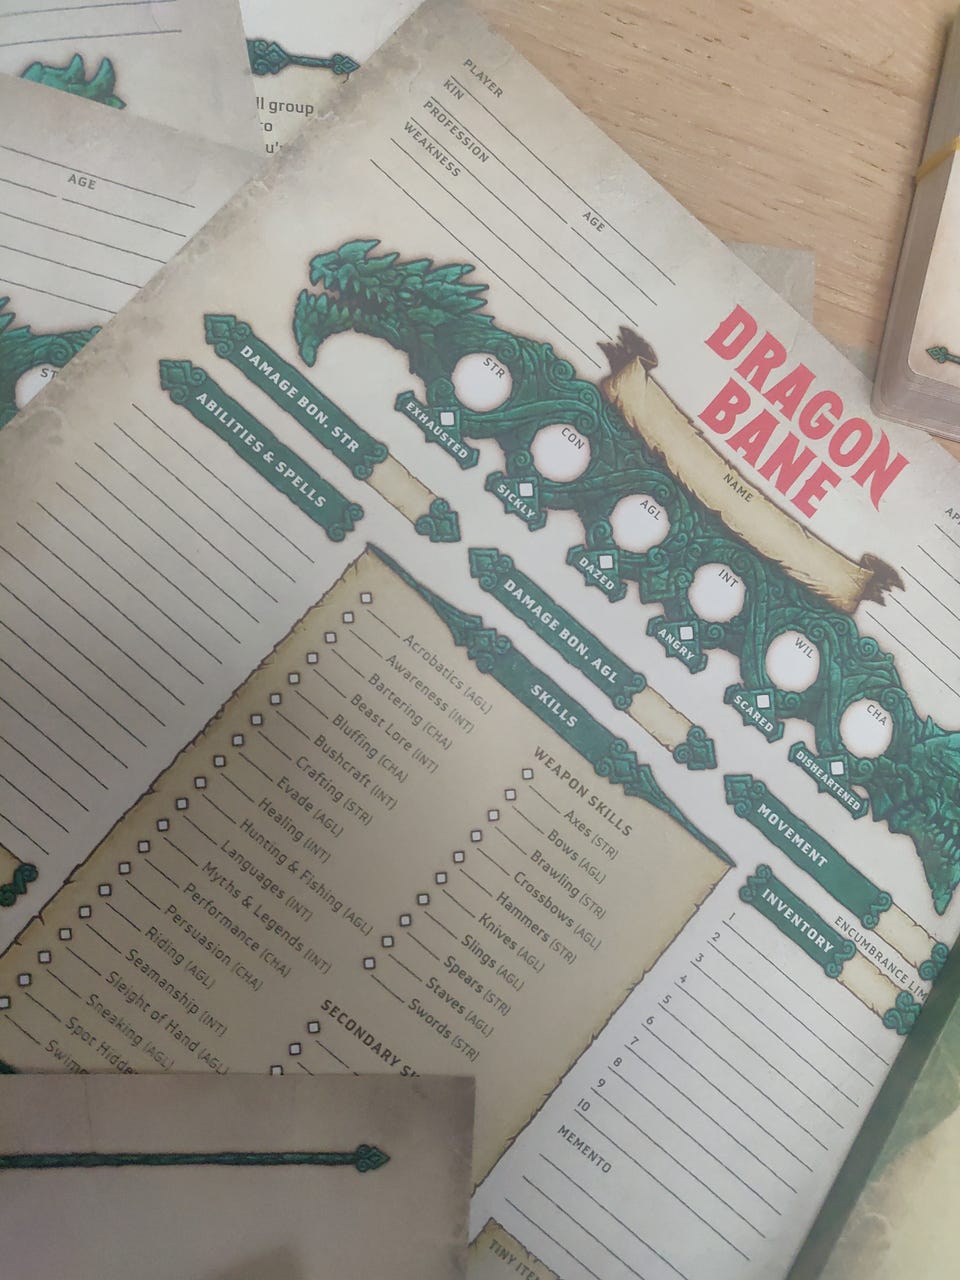 ll group
to
AGE
ST
PLAYER
KIN
AGE
PROFESSION
WEAKNESS
DRAGON
BANE
NAME
STR
CON
AGL
INT
WIL
CHA
EXHAUSTED
SICKLY
DAZED
ANGRY
SCARED
DISHEARTENED
DAMAGE BON. STR
DAMAGE BON. AGL
MOVEMENT
ABILITIES & SPELLS
SKILLS
Acrobatics (AGL)
Awareness (INT)
Bartering (CHA)
Beast Lore (INT)
Bluffing (CHA)
Bushcraft (INT)
Crafting (STR)
Evade (AGL)
Healing (INT)
Hunting & Fishing (AGL)
Languages (INT)
Myths & Legends (INT)
Performance (CHA)
Persuasion (CHA)
Riding (AGL)
Seamanship (INT)
Sleight of Hand (AGL)
Sneaking (AGL)
Spot Hidde
Swim
WEAPON SKILLS
Axes (STR)
Bows (AGL)
Brawling (STR)
Crossbows (AGL)
Hammers (STR)
Knives (AGL)
Slings (AGL)
Spears (STR)
Staves (AGL)
Swords (STR)
SECONDARY SK
INVENTORY
ENCUMBRANCE LIM
1
2
3
4
5
6
7
8
9
10
MEMENTO
TINY ITE